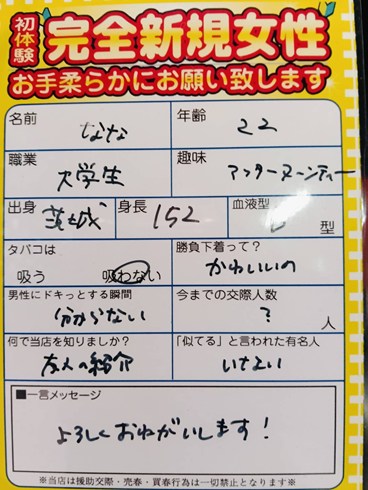 初体験
完全新規女性
お手柔らかにお願い致します
名前 なな 年齢 22
職業 大学生 趣味 アフタヌーンティー
出身 茨城 身長 152 血液型 型
タバコは 吸う 吸わない
勝負下着って? かわいいの
男性にドキっとする瞬間 分からない
今までの交際人数 ? 人
何で当店を知りましたか? 友人の紹介
「似てる」と言われた有名人 いない
■一言メッセージ
よろしくおねがいします!
※当店は援助交際・売春・買春行為は一切禁止となります※